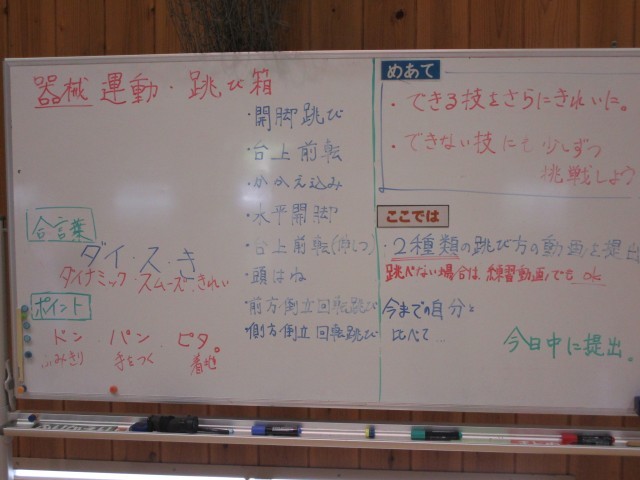 器械運動・跳び箱
・開脚跳び
・台上前転
・かかえ込み
・水平開脚
・台上前転(伸しつ)
・頭はね
・前方倒立回転跳び
・側方倒立回転跳び
合言葉
ダイ・ス・き
ダイナミック・スムーズ・きれい
ポイント
ドン・パン・ピタ。
ふみきり 手をつく 着地
めあて
・できる技をさらにきれいに。
・できない技にも少しずつ
挑戦しよう
ここでは
・2種類の跳び方の動画を提出
跳べない場合は練習動画でもok
今までの自分と
比べて…
今日中に提出。